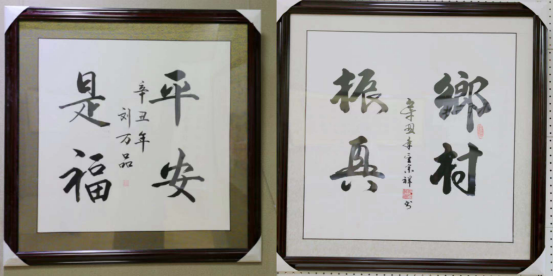 平安
是福
辛丑年
刘万品
鄉村
振真
辛丑年
书